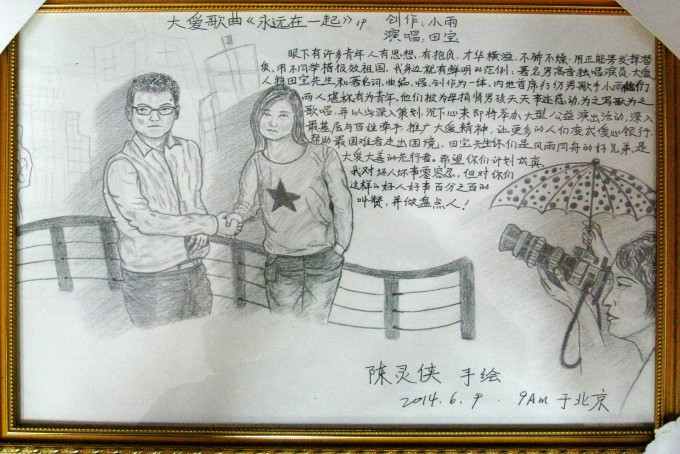 大爱歌曲《永远在一起》
创作：小雨
演唱：田宝
眼下有许多青年人有思想，有抱负，才华横溢，不骄不燥，用正能
负，用不同举措报效祖国，我身边就有鲜明的范例：著名男高音独唱演员，大爱
人物田宝先生和著名词、曲、唱、创作为一体，内地首席
两人堪称有为青年，他们被为母捐肾男孩天天事迹感动，为之写歌为之
歌唱，并以此深入策划，沉下心来即将举办大型公益演出活动，深入
最基层与百姓牵手，推广大爱精神，让更多的人们变成爱心银行，
帮助最困难者走出困境，田宝先生你们是风雨同舟的好兄弟，是
大爱大善的先行者，希望你们计划成真
我对坏人坏事零容忍，但对你们
这样的好人好事百分之百的
叫赞，并做盘点人！
陈灵侠 手绘
2014.6.9. 9Am 于北京